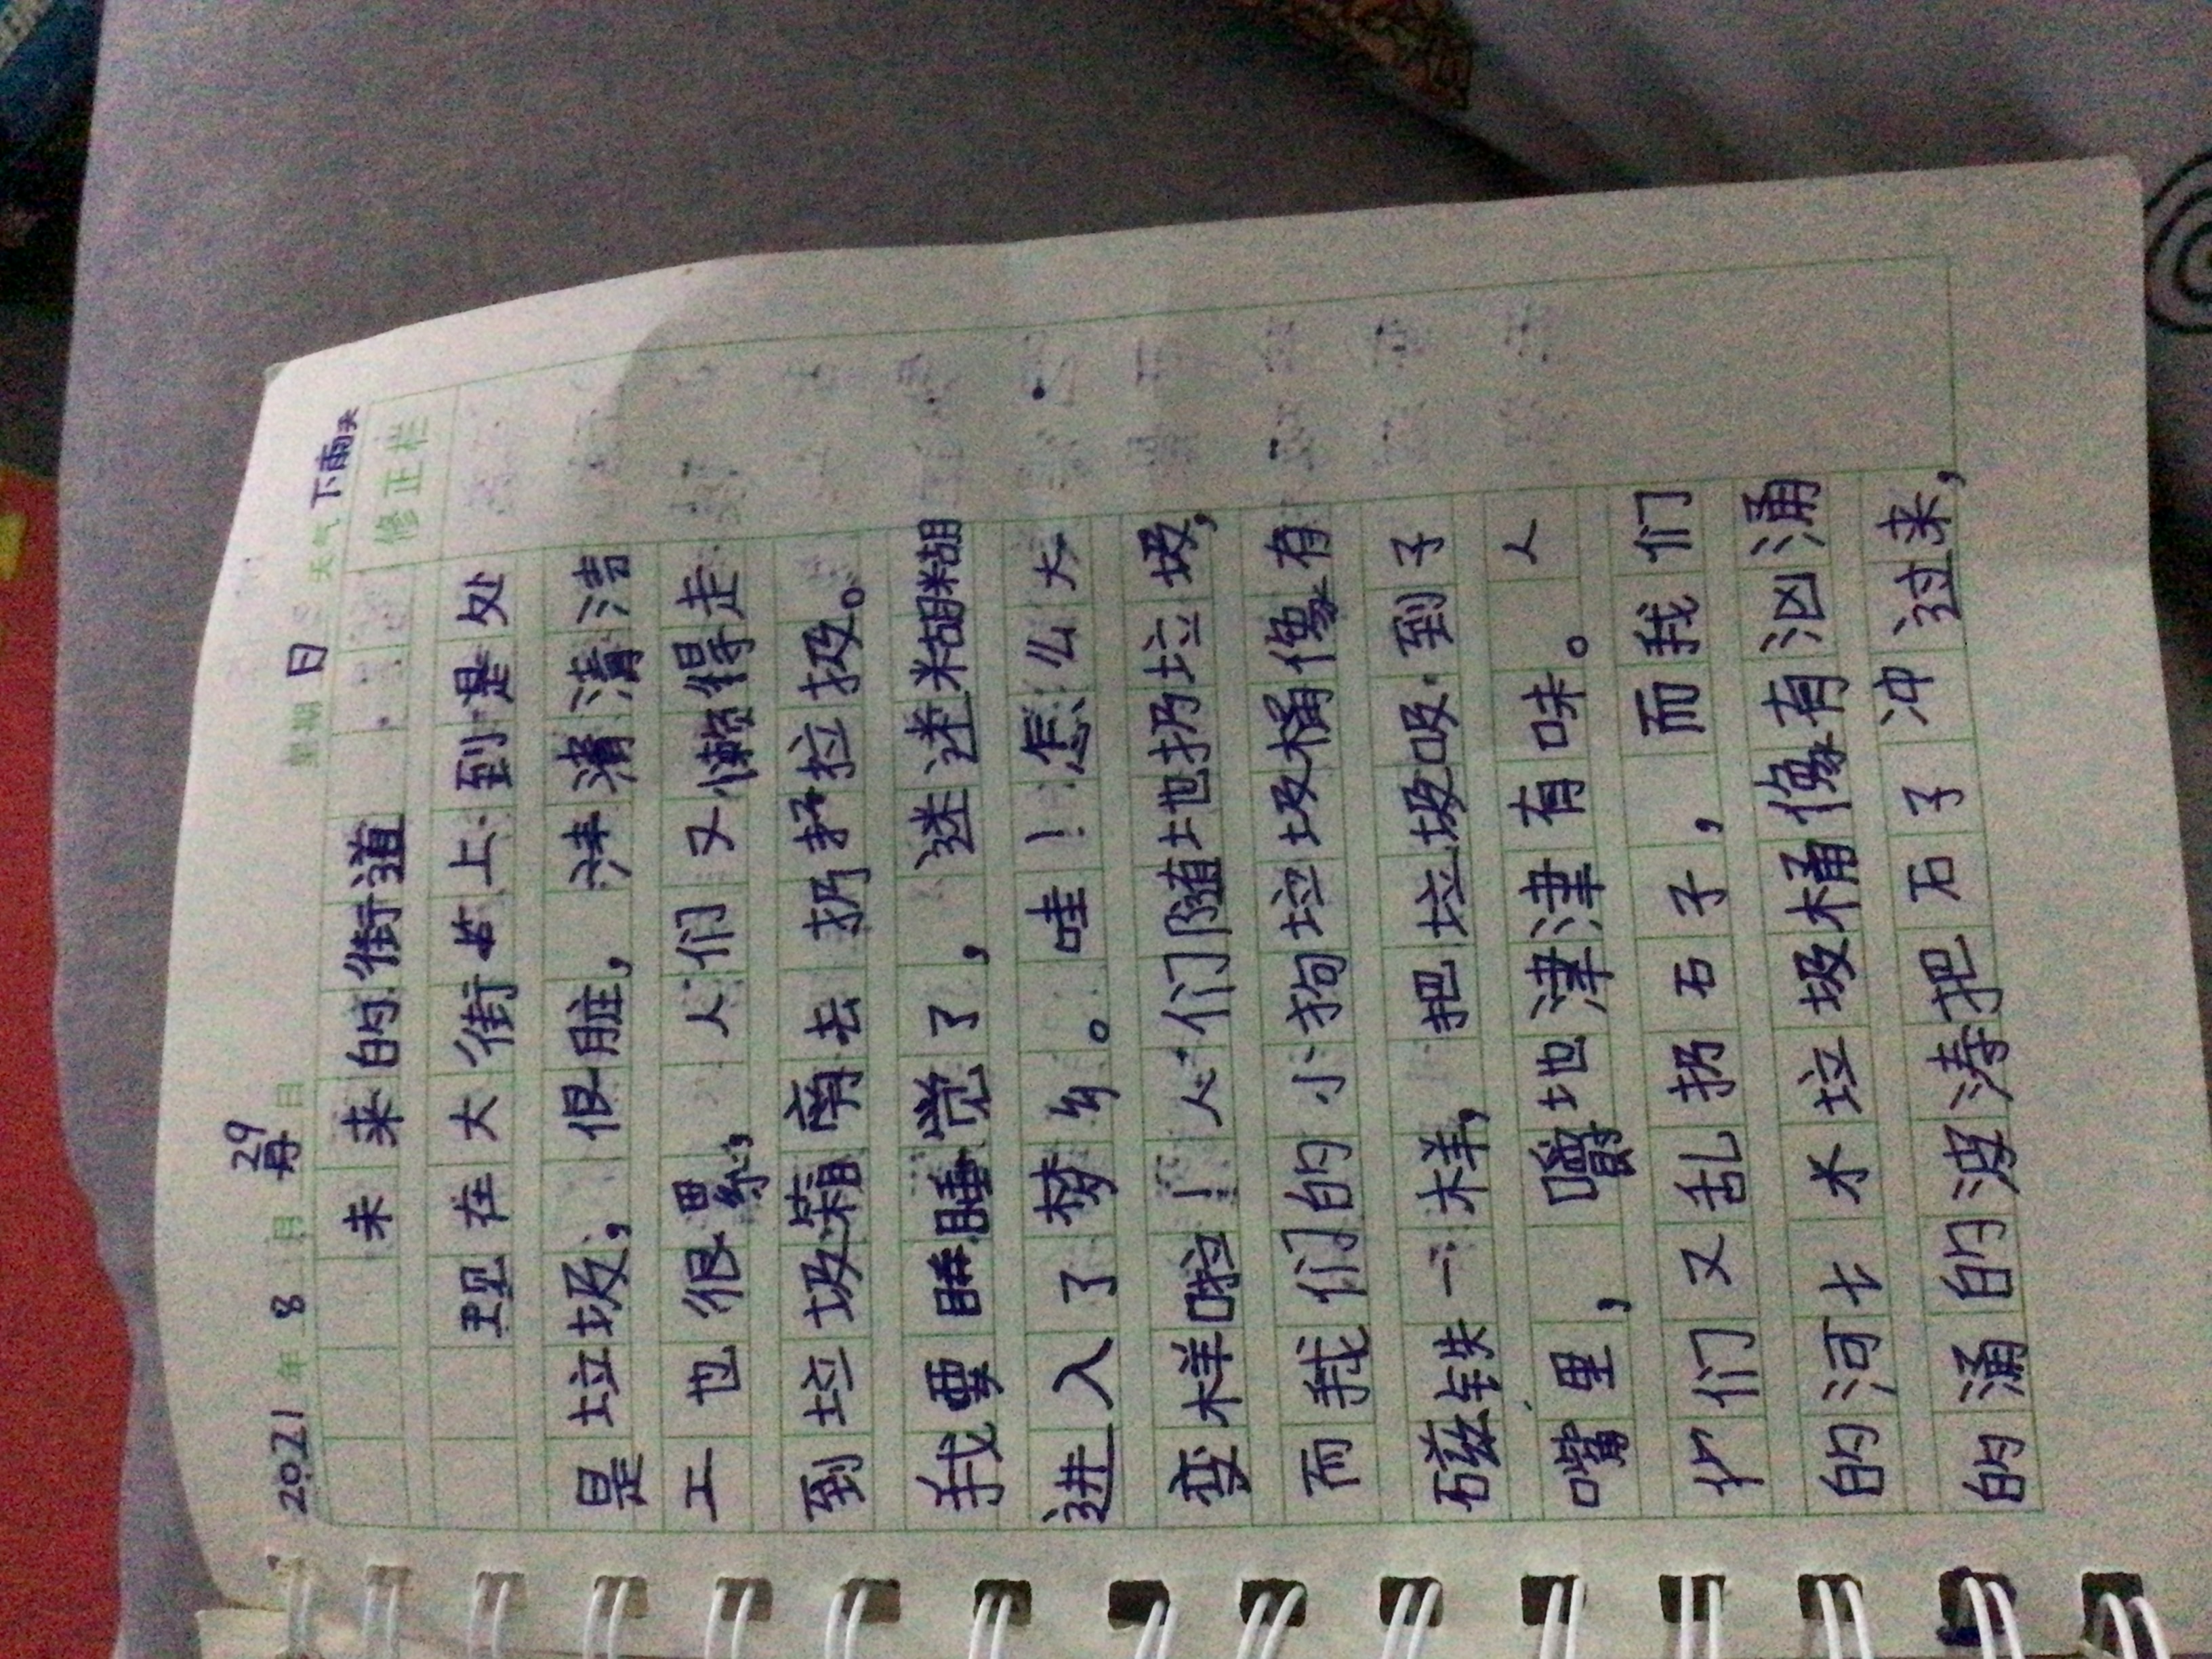 2021年 8月 29日 星期日 天气 下雨天
未来的街道 修正栏
现在大街上到是处
是垃圾，很脏，清清洁
工也很累，人们又懒得走
到垃圾箱旁去扔扔拉圾。
我要睡觉了，迷迷糊糊
进入了梦乡。哇！怎么大
变样啦！人们随地扔垃圾，
而我们的小狗垃圾桶像有
磁铁一样，把垃圾吸到子
嘴里，嚼地津津有味。人
们又乱扔石子，而我们
的河水垃圾桶像有汹涌
的涌的波涛把石子冲过来，